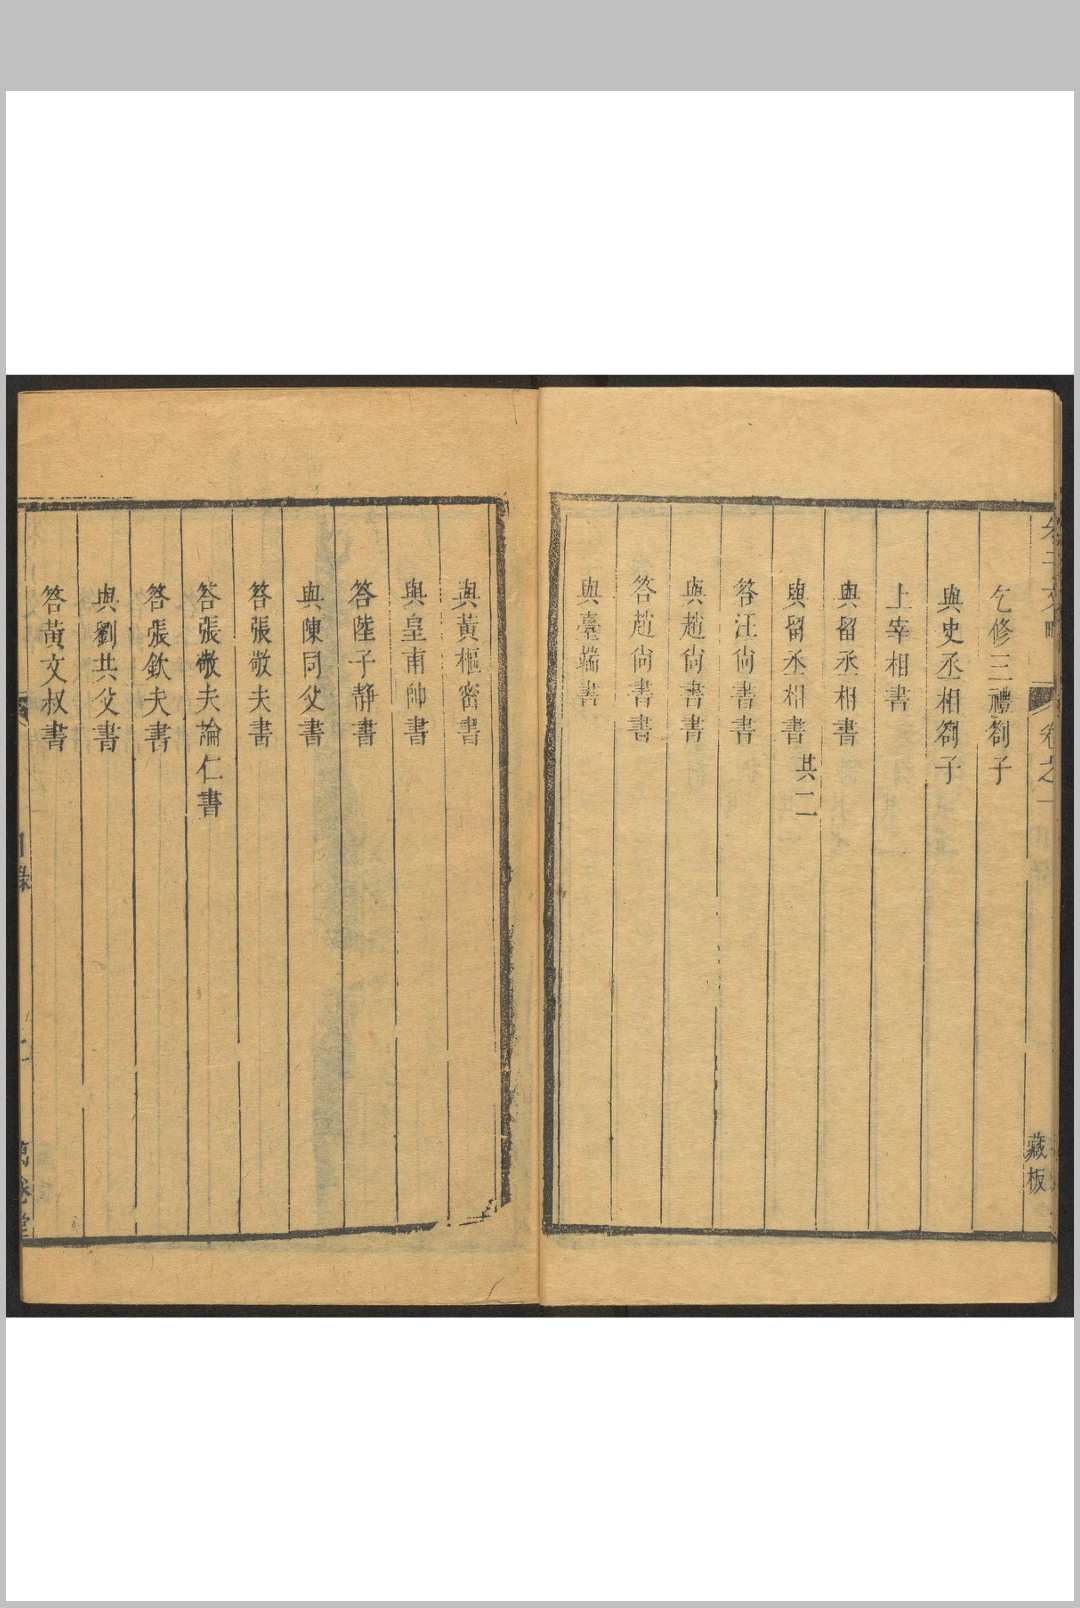 卷之一
藏板
乞修三禮劄子
與史丞相劄子
上宰相書
與留丞相書
與留丞相書 其二
答汪尙書書
與趙尙書書
答趙尙書書
與臺端書
與黃樞密書
與皇甫帥書
答陸子靜書
與陳同父書
答張敬夫書
答張敬夫論仁書
答張欽夫書
與劉共父書
答黃文叔書
目錄
萬卷堂